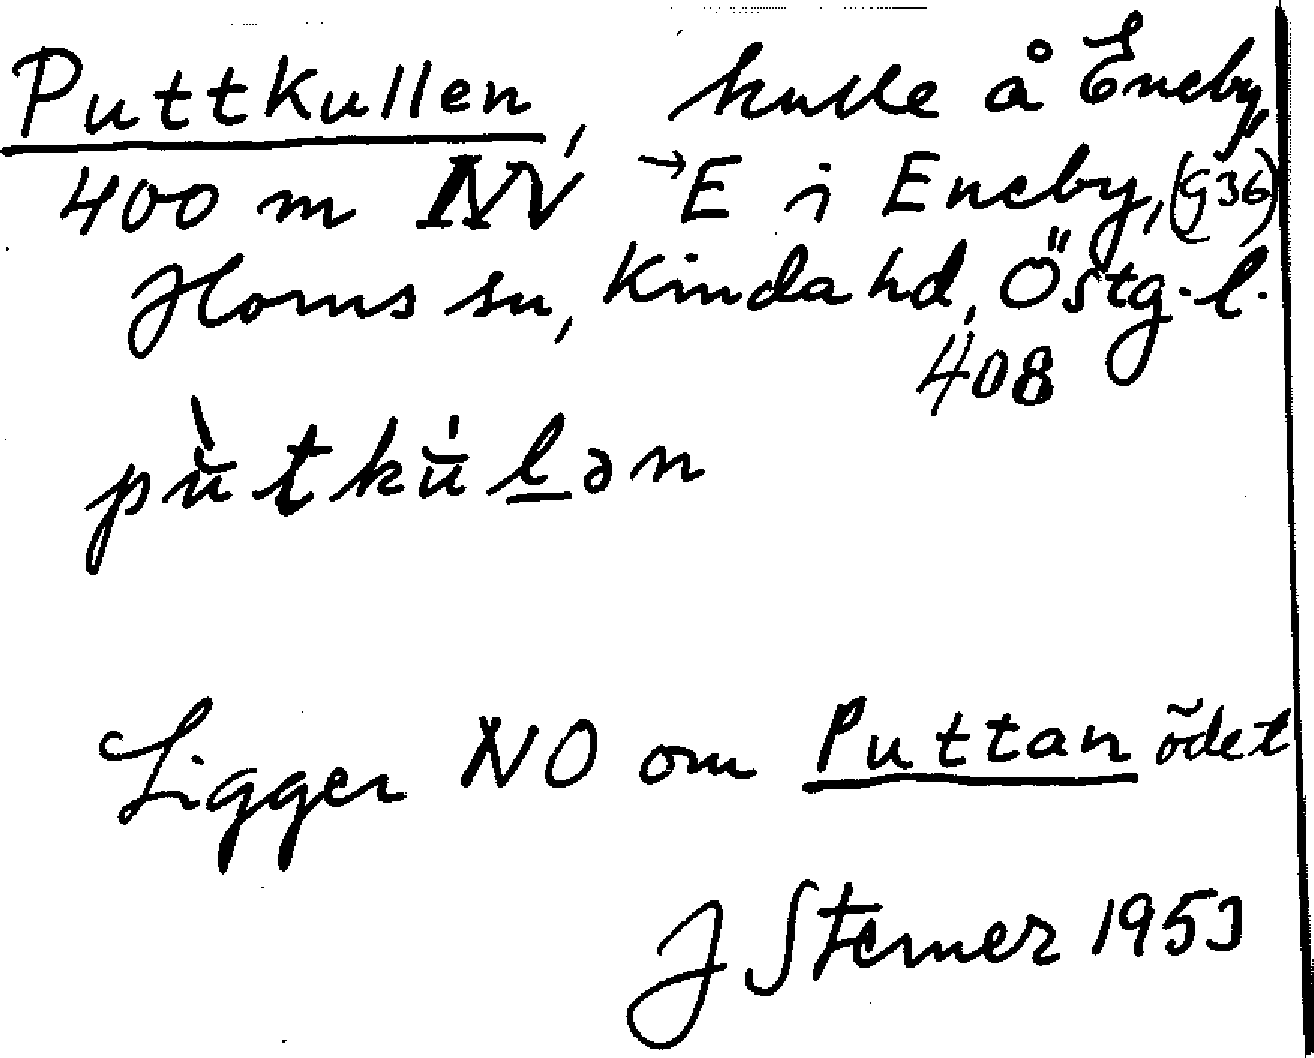 Puttkullen, kulle å Eneby,
400 m NV →E i Eneby, (936)
Horns sn, Kinda hd, Östg. l.
408
pu̇̀tku̇̀l̲ən
Ligger NO om Puttan ödet
J Sterner 1953